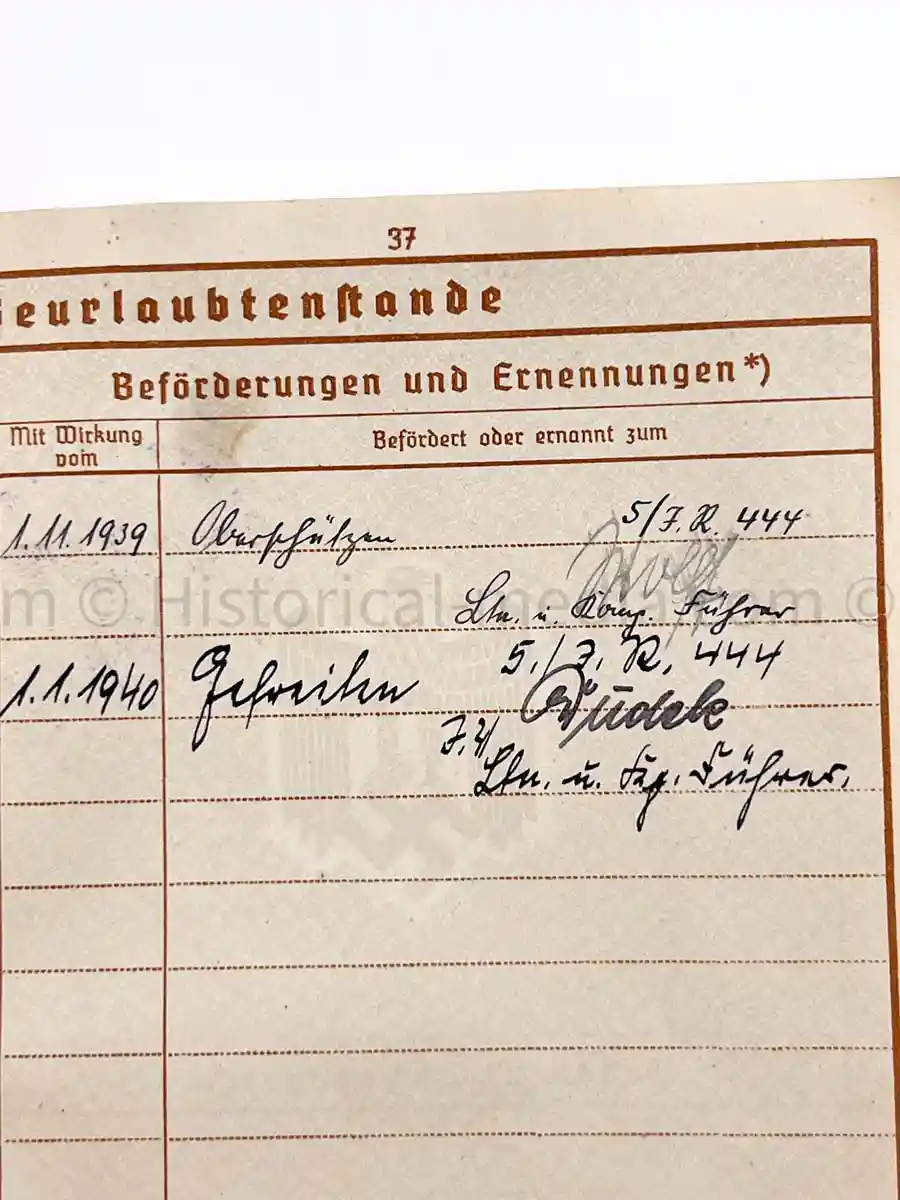 37
eurlaubtenstande
Beförderungen und Ernennungen*)
Mit Wirkung vom
Befördert oder ernannt zum
1.11.1939 Oberschützen 5/J.R. 444
Ltn. u. Komp. Führer
m © Historical m ©
1.1.1940 Gefreiten 5./J.R. 444
Dudek
Ltn. u. Kp. Führer.